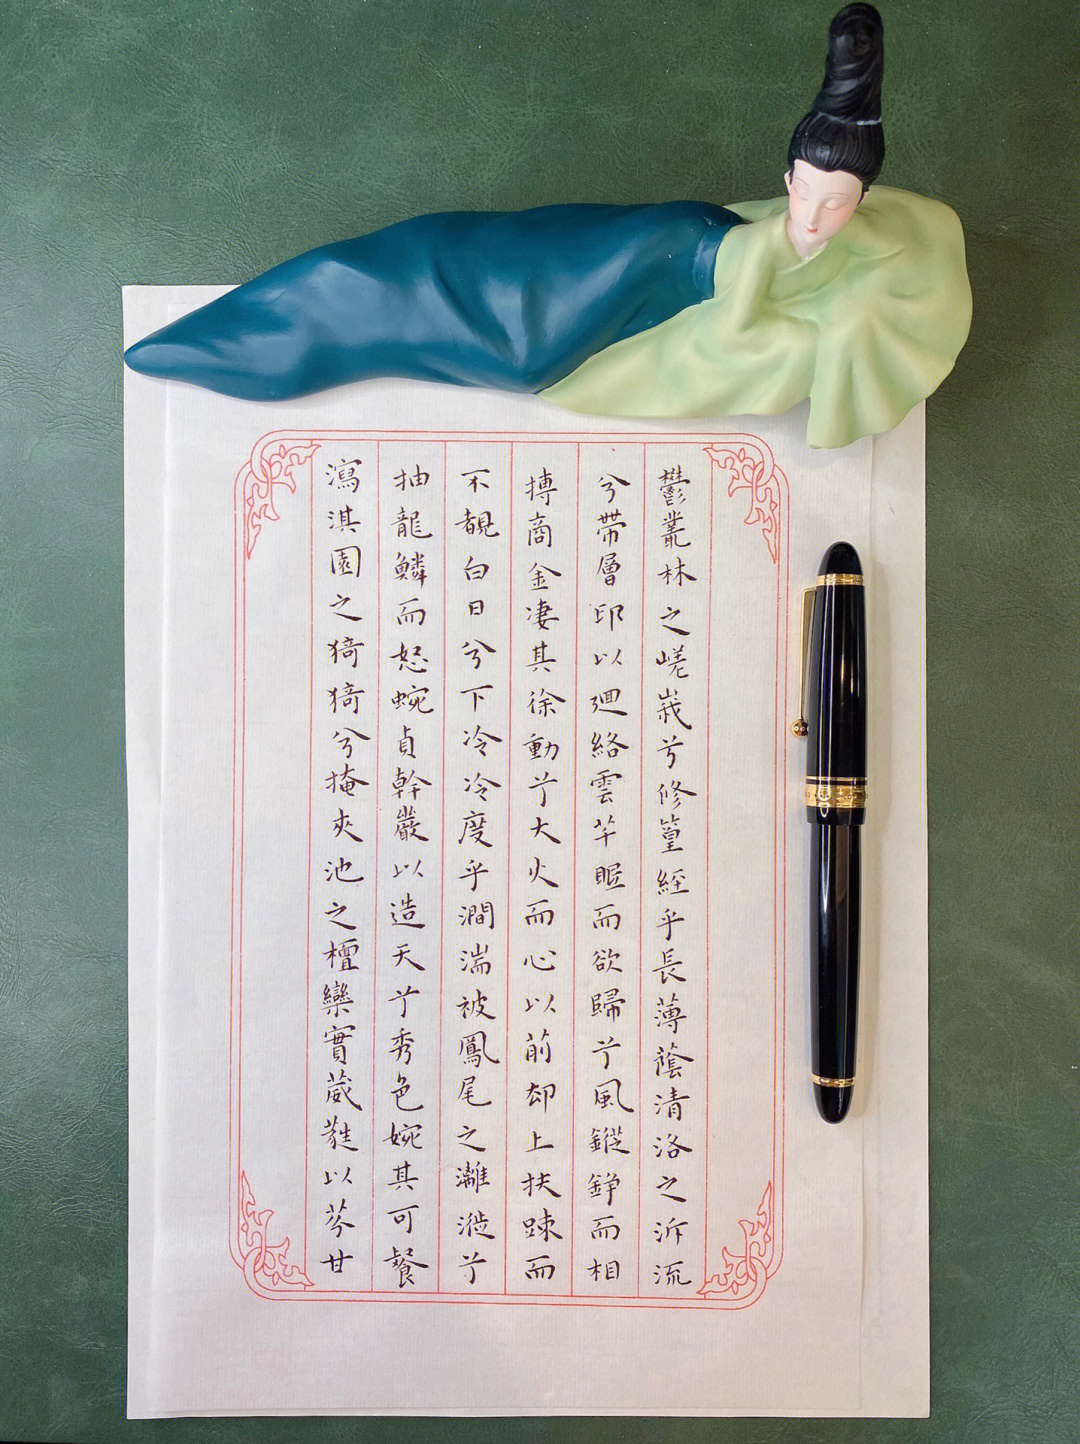 鬱叢林之嵯峩兮修篁經乎長薄蔭清洛之泝流
兮帶層邙以迴絡雲芊眠而欲歸兮風鏦錚而相
搏商金凄其徐動兮大火而心以前却上扶疎而
不覩白日兮下冷冷度乎澗湍被鳳尾之灕漇兮
抽龍鱗而怒蜿貞幹嚴以造天兮秀色婉其可餐
瀉淇園之猗猗兮掩夾池之檀欒實葳蕤以芬甘